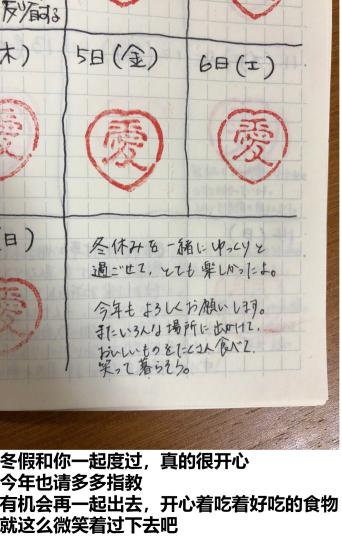 木)
5日(金)
6日(土)
愛
愛
愛
日)
愛
冬休みを一緒にゆっくりと
過ごせて、とても楽しかったよ。
今年もよろしくお願いします。
またいろんな場所に出かけて、
おいしいものをたくさん食べて、
笑って暮らそう。
冬假和你一起度过，真的很开心
今年也请多多指教
有机会再一起出去，开心着吃着好吃的食物
就这么微笑着过下去吧